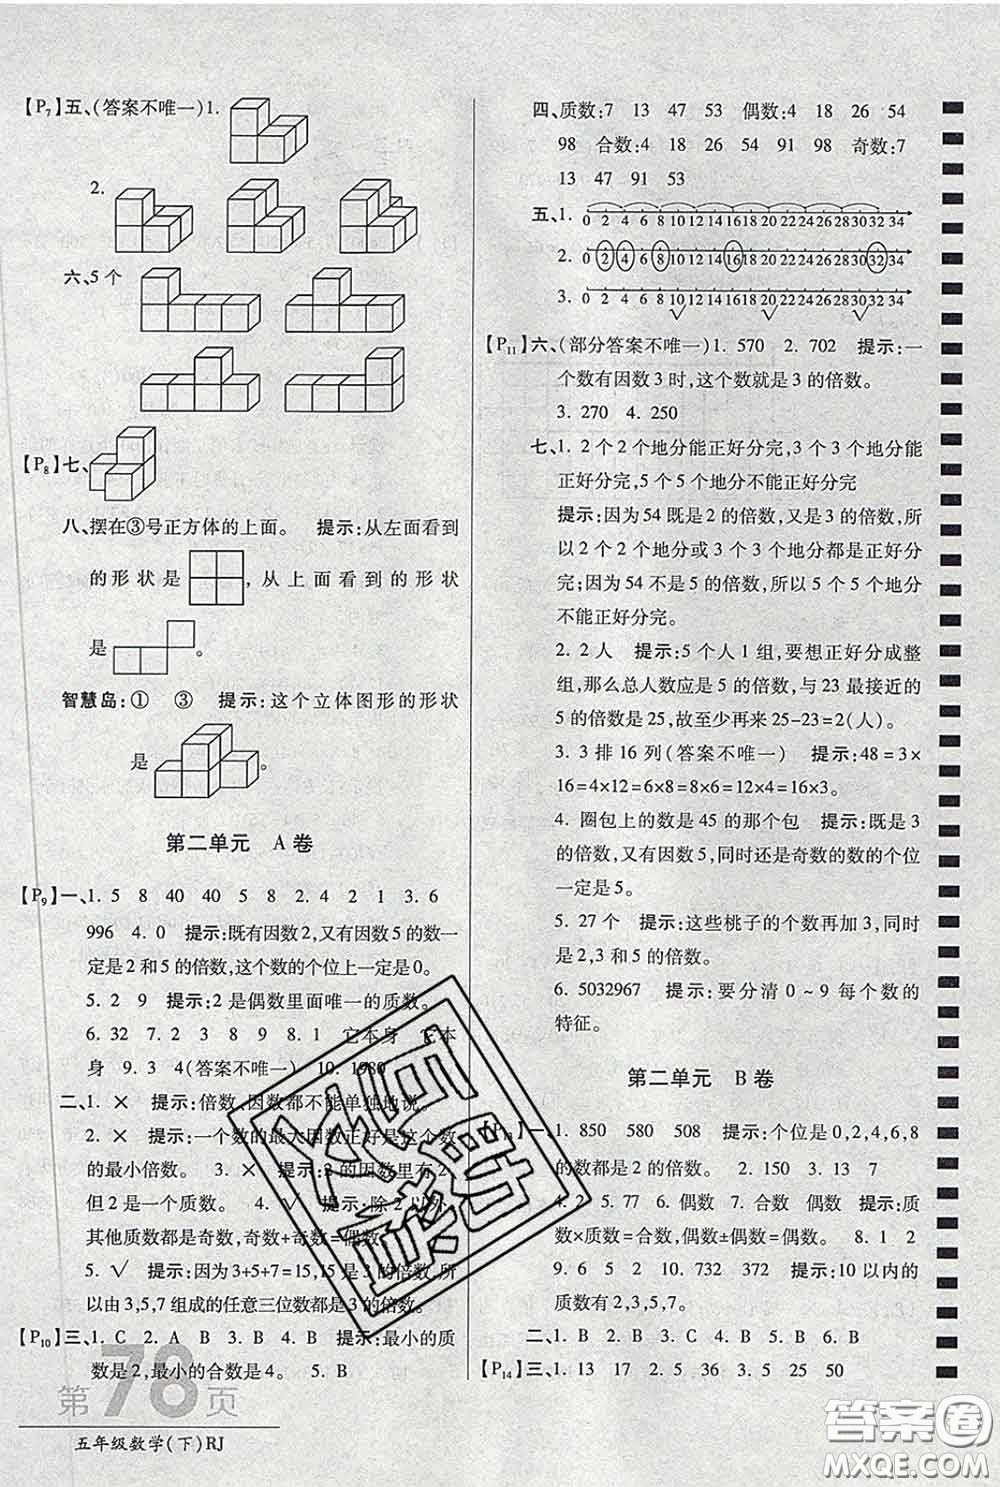 【P7】五、(答案不唯一)1.
2.
六、5个
【P8】七、
八、摆在③号正方体的上面。 提示:从左面看到
的形状是 ,从上面看到的形状
是 。
智慧岛:① ③ 提示:这个立体图形的形状
是 。
第二单元 A卷
【P9】一、1. 5 8 40 40 5 8 2. 4 2 1 3. 6
996 4. 0 提示:既有因数2,又有因数5的数一
定是2和5的倍数,这个数的个位上一定是0。
5. 2 9 提示:2是偶数里面唯一的质数。
6. 32 7. 2 3 8 9 8. 1 它本身 它本
身 9. 3 4(答案不唯一) 10. 1980
二、1. × 提示:倍数、因数都不能单独地说。
2. × 提示:一个数的最大因数正好是这个数
的最小倍数。 3. × 提示:2的因数只有2个,
但2是质数。 4. √ 提示:除2以外,
其他质数都是奇数,奇数+奇数=偶数。
5. √ 提示:因为3+5+7=15,15是3的倍数,所
以由3,5,7组成的任意三位数都是3的倍数。
【P10】三、1. C 2. A B 3. B 4. B 提示:最小的质
数是2,最小的合数是4。 5. B
第78页
五年级数学(下)RJ
四、质数:7 13 47 53 偶数:4 18 26 54
98 合数:4 18 26 54 91 98 奇数:7
13 47 91 53
五、1. 0 2 4 6 8 10 12 14 16 18 20 22 24 26 28 30 32 34
2. 0 2 4 6 8 10 12 14 16 18 20 22 24 26 28 30 32 34
3. 0 2 4 6 8 10 12 14 16 18 20 22 24 26 28 30 32 34
【P11】六、(部分答案不唯一)1. 570 2. 702 提示:一
个数有因数3时,这个数就是3的倍数。
3. 270 4. 250
七、1. 2个2个地分能正好分完,3个3个地分能
正好分完,5个5个地分不能正好分完
提示:因为54既是2的倍数,又是3的倍数,所
以2个2个地分或3个3个地分都是正好分
完;因为54不是5的倍数,所以5个5个地分
不能正好分完。
2. 2人 提示:5个人1组,要想正好分成整
组,那么总人数应是5的倍数,与23最接近的
5的倍数是25,故至少再来25-23=2(人)。
3. 3排16列(答案不唯一) 提示:48=3×
16=4×12=6×8=8×6=12×4=16×3。
4. 圈包上的数是45的那个包 提示:既是3
的倍数,又有因数5,同时还是奇数的数的个位
一定是5。
5. 27个 提示:这些桃子的个数再加3,同时
是2,3和5的倍数。
6. 5032967 提示:要分清0~9每个数的
特征。
第二单元 B卷
一、1. 850 580 508 提示:个位是0,2,4,6,8
的数都是2的倍数。 2. 150 3. 13 7
4. 2 5. 77 6. 偶数 7. 合数 偶数 提示:质
数×质数=合数,偶数±偶数=偶数。 8. 1 2
9. 6 5 10. 732 372 提示:10以内的
质数有2,3,5,7。
二、1. B 2. B 3. B 4. B 5. B 6. B
【P14】三、1. 13 17 2. 5 35 3. 5 25 50
答案圈
MXQE.COM